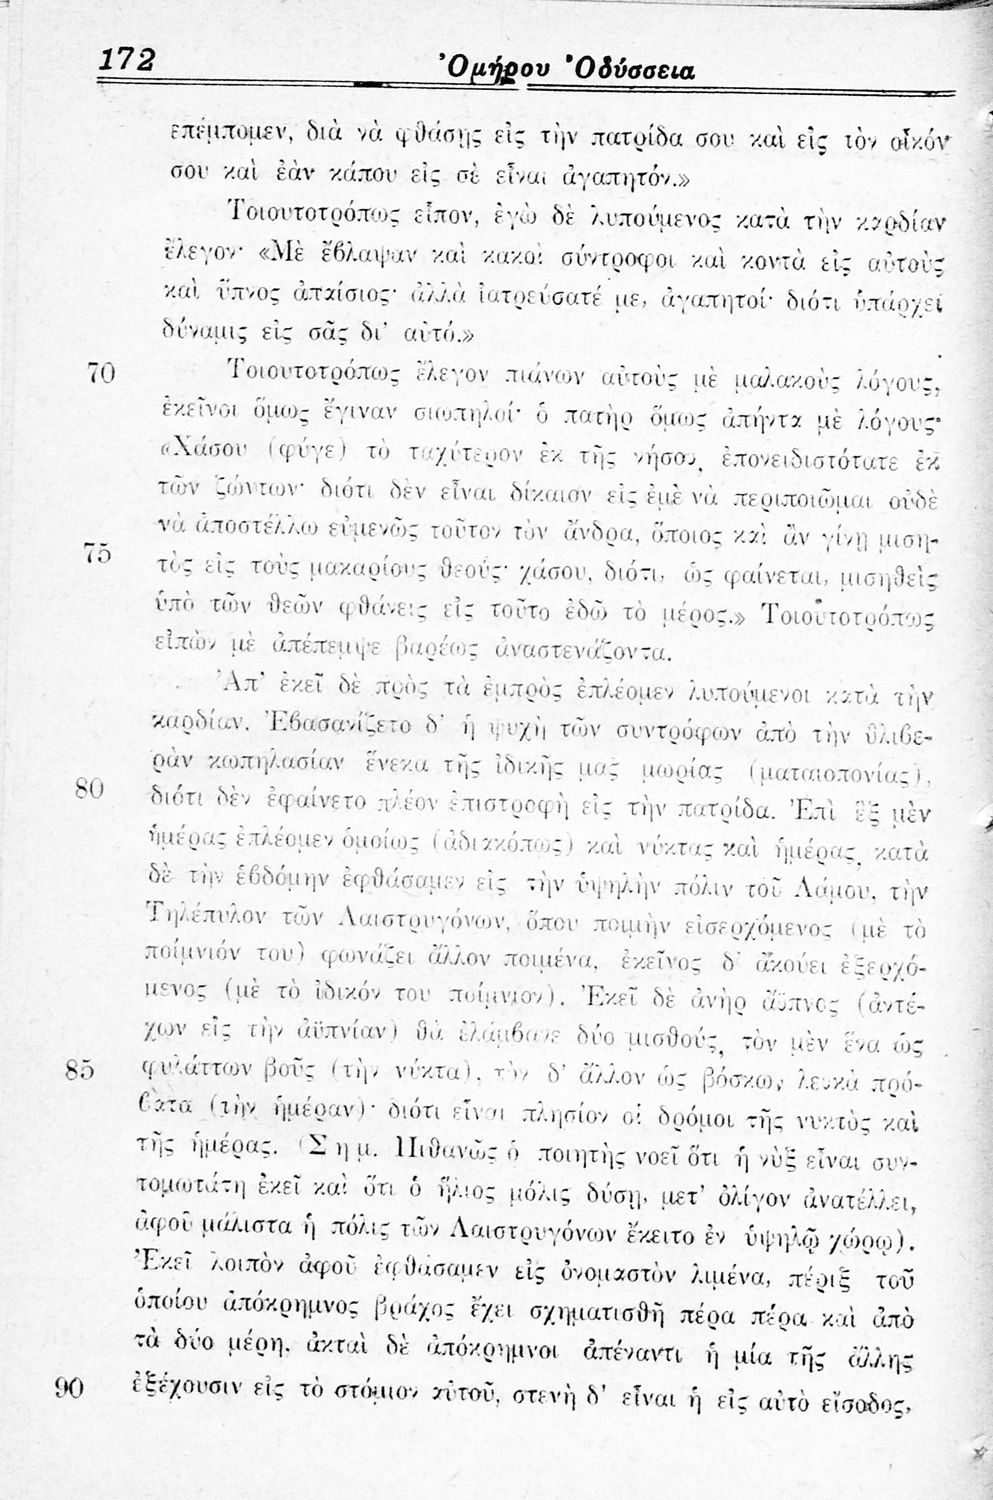 172 Ὁμήρου Ὀδύσσεια
επέμπομεν, διὰ νὰ φθάσῃς εἰς τὴν πατρίδα σου καὶ εἰς τὸν οἶκόν
σου καὶ ἐὰν κάπου εἰς σὲ εἶναι ἀγαπητόν.»
Τοιουτοτρόπως εἶπον, ἐγὼ δὲ λυπούμενος κατὰ τὴν καρδίαν
ἔλεγον· «Μὲ ἔβλαψαν καὶ κακοὶ σύντροφοι καὶ κοντὰ εἰς αὐτοὺς
καὶ ὕπνος ἀπαίσιος· ἀλλὰ ἰατρεύσατέ με, ἀγαπητοί· διότι ὑπάρχει
δύναμις εἰς σᾶς δι' αὐτό.»
70 Τοιουτοτρόπως ἔλεγον πιάνων αὐτοὺς μὲ μαλακοὺς λόγους,
ἐκεῖνοι ὅμως ἔγιναν σιωπηλοί· ὁ πατὴρ ὅμως ἀπήντα μὲ λόγους·
«Χάσου (φύγε) τὸ ταχύτερον ἐκ τῆς νήσου, ἐπονειδιστότατε ἐκ
τῶν ζώντων· διότι δὲν εἶναι δίκαιον εἰς ἐμὲ νὰ περιποιῶμαι οὐδὲ
νὰ ἀποστέλλω εὐμενῶς τοῦτον τὸν ἄνδρα, ὅποιος καὶ ἂν γίνῃ μιση-
75 τὸς εἰς τοὺς μακαρίους θεούς· χάσου, διότι, ὡς φαίνεται, μισηθεὶς
ὑπὸ τῶν θεῶν φθάνεις εἰς τοῦτο ἐδῶ τὸ μέρος.» Τοιουτοτρόπως
εἰπὼν μὲ ἀπέπεμψε βαρέως ἀναστενάζοντα.
Ἀπ' ἐκεῖ δὲ πρὸς τὰ ἐμπρὸς ἐπλέομεν λυπούμενοι κατὰ τὴν
καρδίαν. Ἐβασανίζετο δ' ἡ ψυχὴ τῶν συντρόφων ἀπὸ τὴν θλιβε-
ρὰν κωπηλασίαν ἕνεκα τῆς ἰδικῆς μας μωρίας (ματαιοπονίας),
80 διότι δὲν ἐφαίνετο πλέον ἐπιστροφὴ εἰς τὴν πατρίδα. Ἐπὶ ἓξ μὲν
ἡμέρας ἐπλέομεν ὁμοίως (ἀδιακόπως) καὶ νύκτας καὶ ἡμέρας, κατὰ
δὲ τὴν ἑβδόμην ἐφθάσαμεν εἰς τὴν ὑψηλὴν πόλιν τοῦ Λάμου, τὴν
Τηλέπυλον τῶν Λαιστρυγόνων, ὅπου ποιμὴν εἰσερχόμενος (μὲ τὸ
ποίμνιόν του) φωνάζει ἄλλον ποιμένα, ἐκεῖνος δ' ἀκούει ἐξερχό-
μενος (μὲ τὸ ἰδικόν του ποίμνιον). Ἐκεῖ δὲ ἀνὴρ ἄϋπνος (ἀντέ-
χων εἰς τὴν ἀϋπνίαν) θὰ ἐλάμβανε δύο μισθούς, τὸν μὲν ἕνα ὡς
85 φυλάττων βοῦς (τὴν νύκτα), τὸν δ' ἄλλον ὡς βόσκων λευκὰ πρό-
βατα (τὴν ἡμέραν)· διότι εἶναι πλησίον οἱ δρόμοι τῆς νυκτὸς καὶ
τῆς ἡμέρας. (Σημ. Πιθανῶς ὁ ποιητὴς νοεῖ ὅτι ἡ νὺξ εἶναι συν-
τομωτάτη ἐκεῖ καὶ ὅτι ὁ ἥλιος μόλις δύσῃ, μετ' ὀλίγον ἀνατέλλει,
ἀφοῦ μάλιστα ἡ πόλις τῶν Λαιστρυγόνων ἔκειτο ἐν ὑψηλῷ χώρῳ).
Ἐκεῖ λοιπὸν ἀφοῦ ἐφθάσαμεν εἰς ὀνομαστὸν λιμένα, πέριξ τοῦ
ὁποίου ἀπόκρημνος βράχος ἔχει σχηματισθῆ πέρα πέρα καὶ ἀπὸ
τὰ δύο μέρη, ἀκταὶ δὲ ἀπόκρημνοι ἀπέναντι ἡ μία τῆς ἄλλης
90 ἐξέχουσιν εἰς τὸ στόμιον αὐτοῦ, στενὴ δ' εἶναι ἡ εἰς αὐτὸ εἴσοδος,